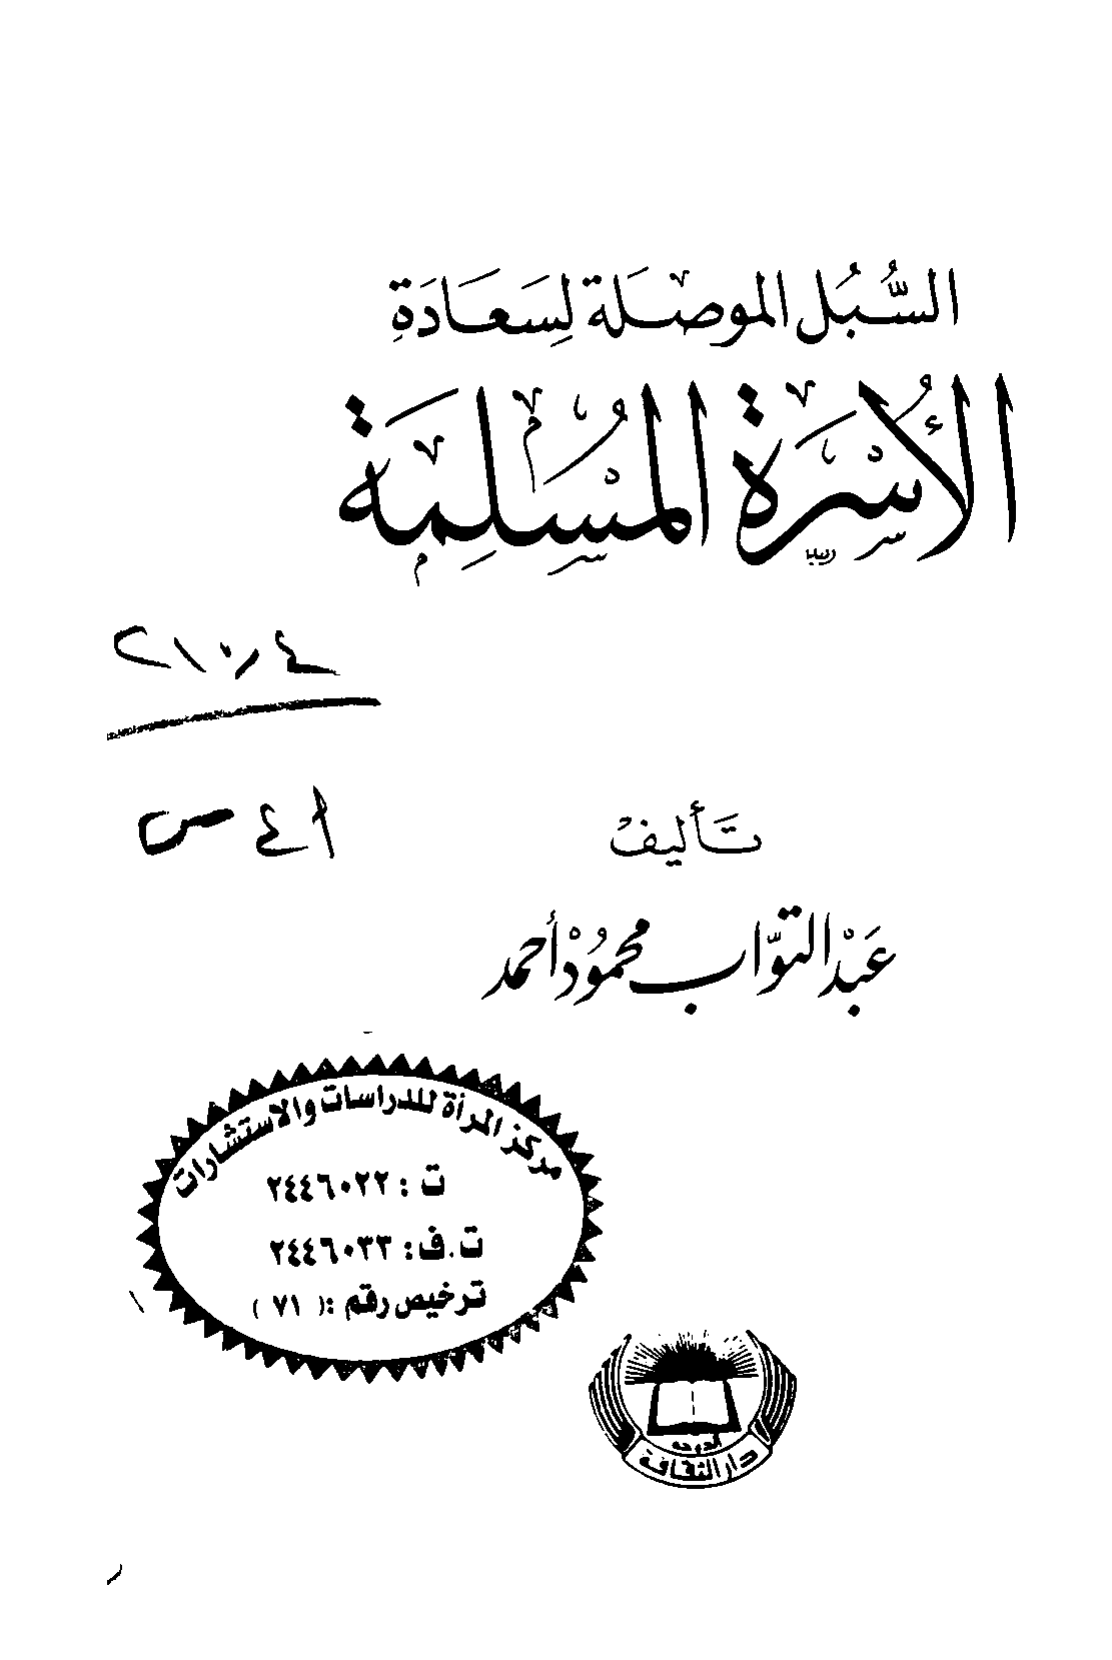 السُّبُل الموصلة لِسَعَادَةِ
الأُسْرَة المُسْلِمَة
٢١٠,٤
أ ع س
تَأليفْ
عَبْد التوَّاب محمُودْ أحمد
مركز المرأة للدراسات والاستشارات
ت : ٢٤٤٦٠٢٢
ت.ف: ٢٤٤٦٠٣٣
ترخيص رقم :( ٧١ )
الدوحة
دار الثقافة